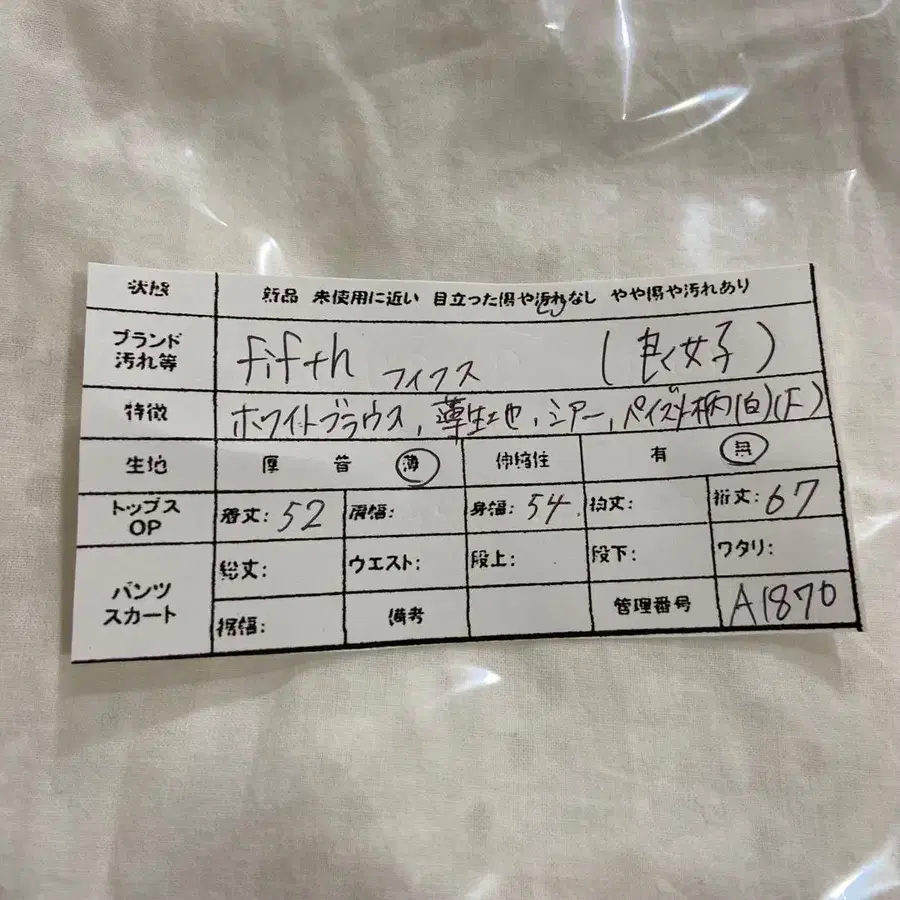 状態 新品 未使用に近い 目立った傷や汚れなし やや傷や汚れあり
ブランド 汚れ等 fifth フィフス (良く女子)
特徴 ホワイトブラウス, 薄生地, シアー, ペイズリー柄(白)(F)
生地 厚 普 薄 伸縮性 有 無
トップス OP 着丈: 52 肩幅: 身幅: 54 袖丈: 裄丈: 67
パンツ スカート 総丈: ウエスト: 股上: 股下: ワタリ:
裾幅: 備考 管理番号 A1870